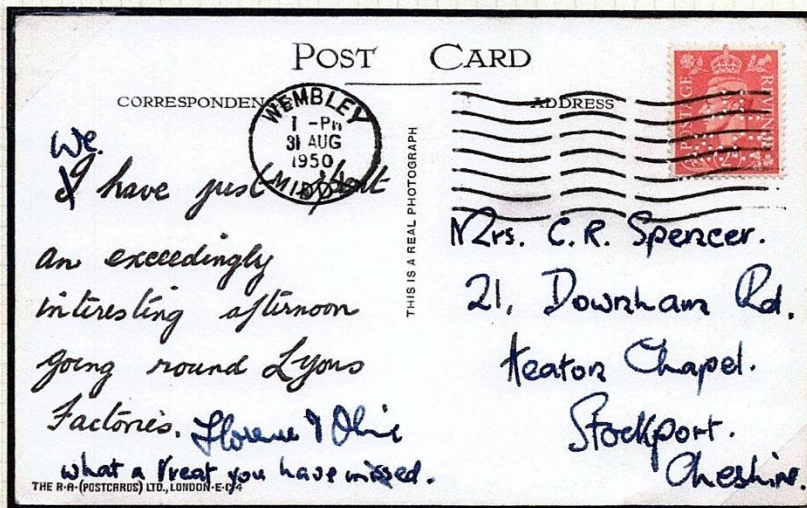 POST CARD
CORRESPONDEN
ADDRESS
WEMBLEY
1 - PM
31 AUG
1950
MIDDX
POSTAGE REVENUE
THIS IS A REAL PHOTOGRAPH
We.
I have just spent
an exceedingly
interesting afternoon
going round Lyons
Factories. Florence & Olive
what a treat you have missed.
Mrs. C.R. Spencer.
21, Downham Rd.
Heaton Chapel.
Stockport.
Cheshire.
THE R·A·(POSTCARDS) LTD., LONDON·E·C·4